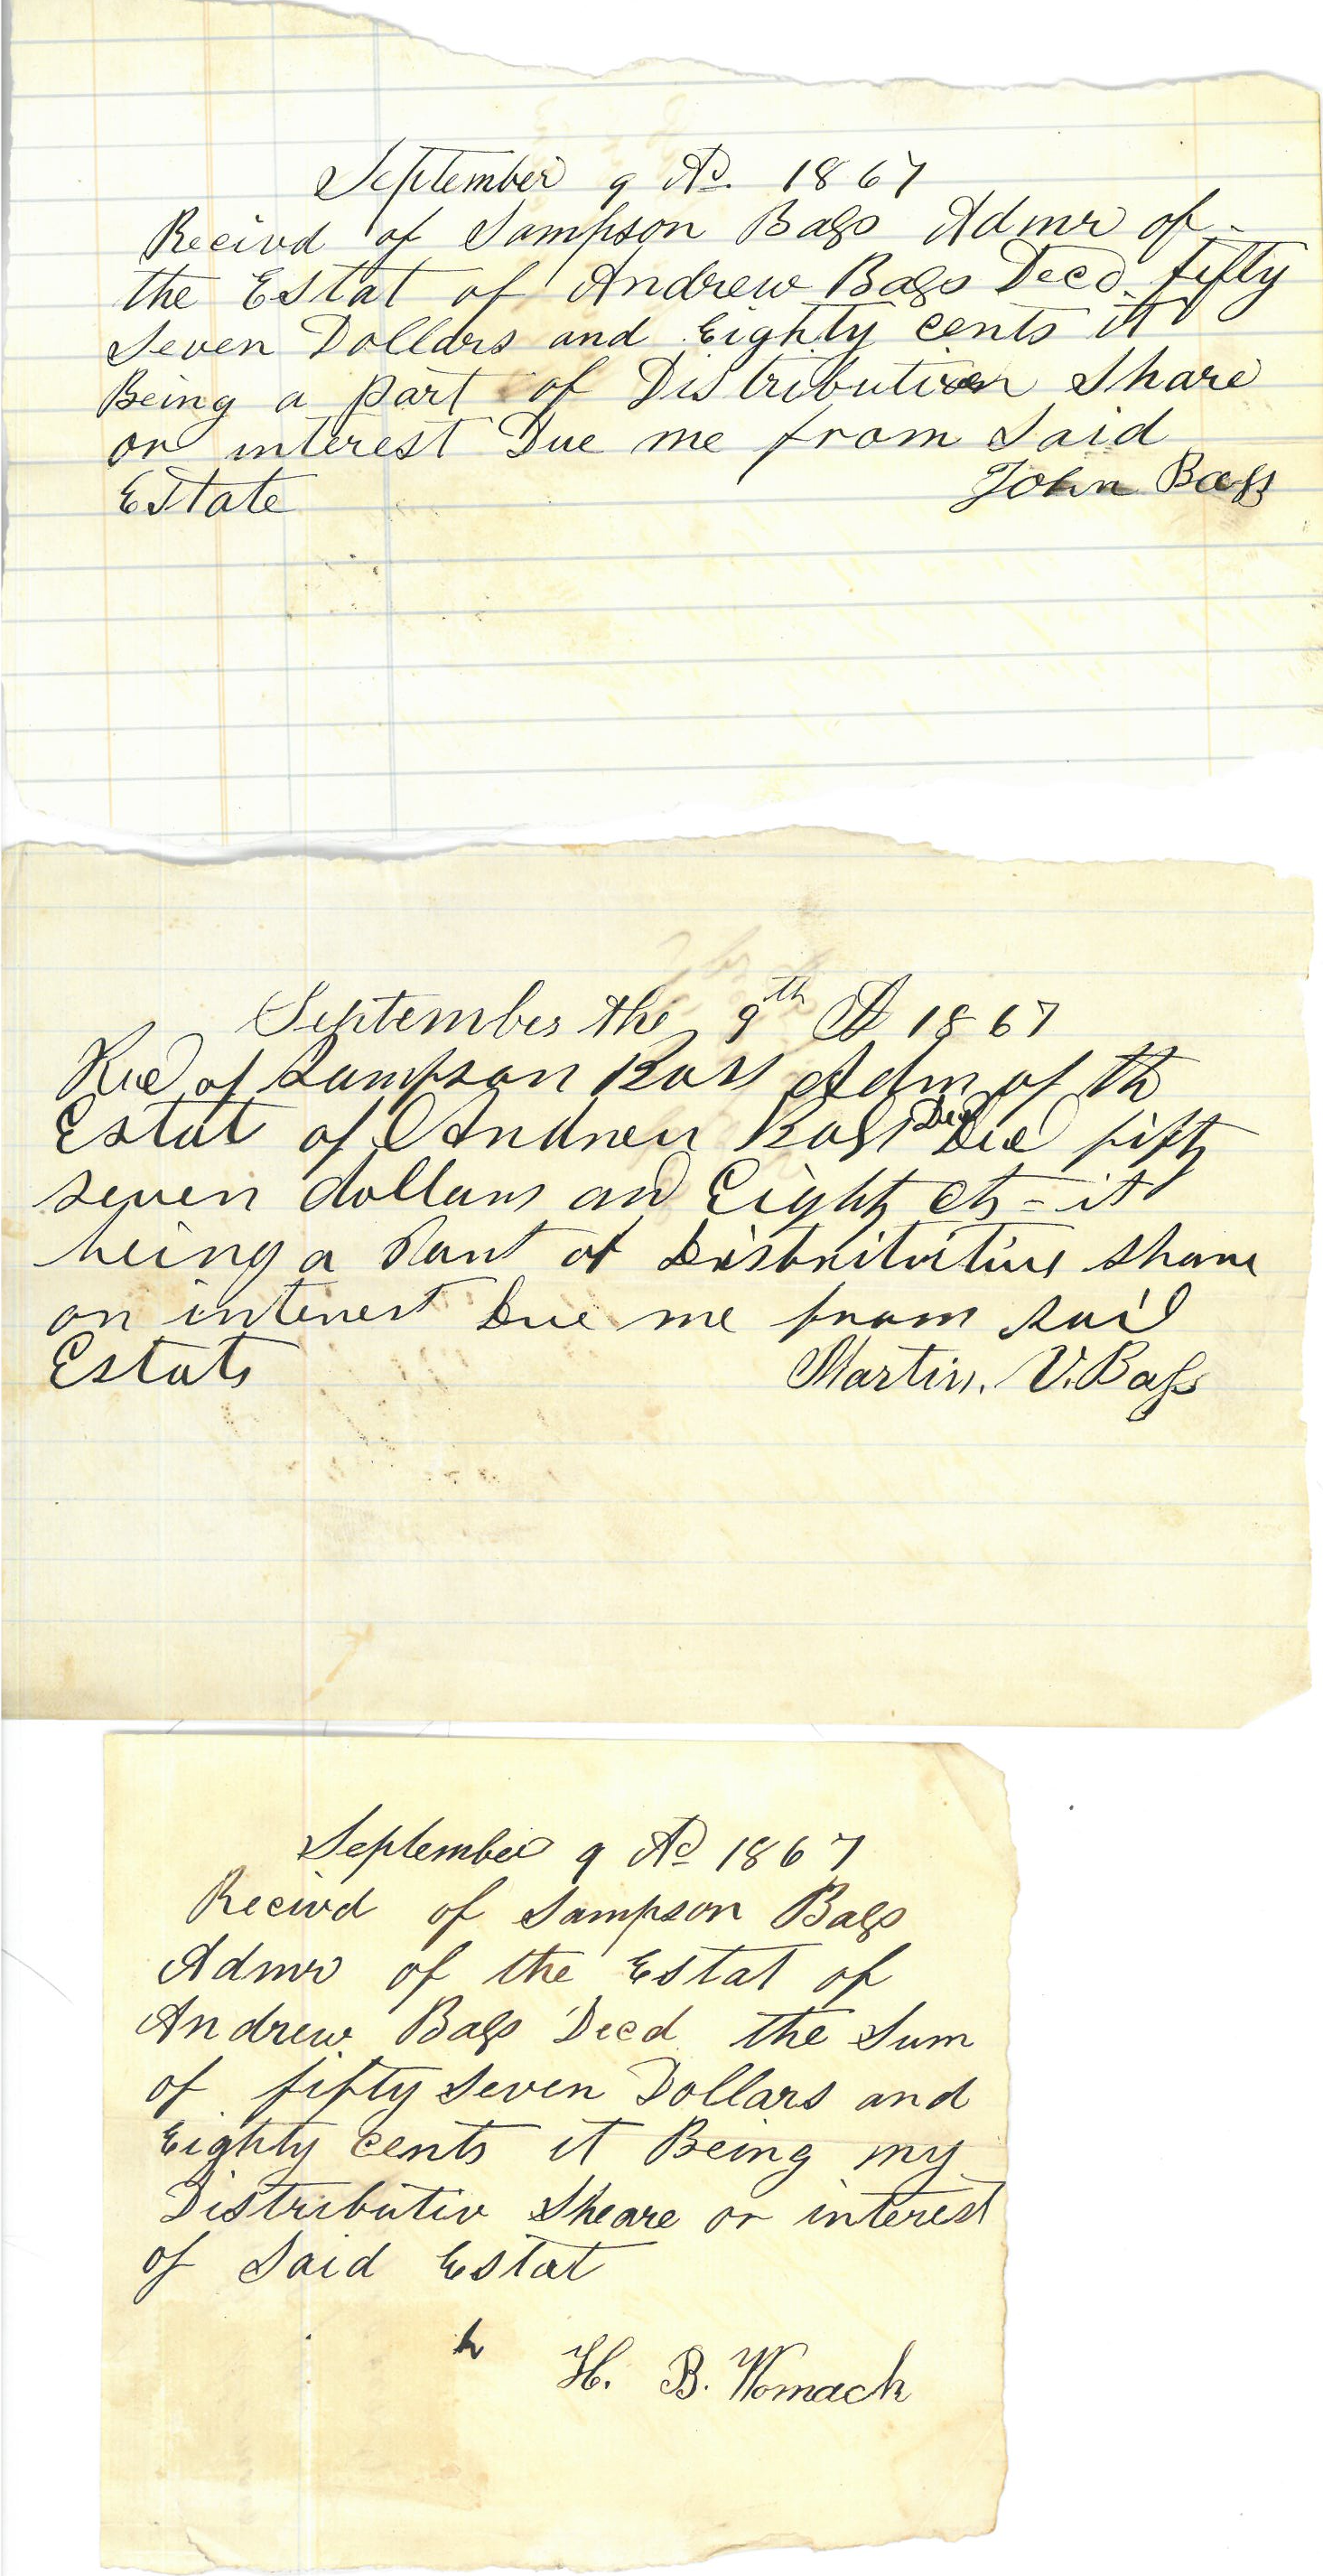 September 9 AD. 1867
Recivd of Sampson Bass Admr of
the Estat of Andrew Bass Decd. fifty
Seven Dollars and Eighty cents it
Being a part of Distribution Share
or interest Due me from Said
Estate John Bass
September the 9th AD 1867
Recd of Sampson Bass Adm of th
Estat of Andrew Bass Decd Decd fifty
seven dollars and Eighty cts = it
being a Part of Distributive share
or interest Due me from said
Estate Martin. V. Bass
September 9 AD 1867
Recivd of Sampson Bass
Admr of the Estat of
Andrew Bass Decd the Sum
of fifty Seven Dollars and
Eighty cents it Being my
Distributiv Sheare or interest
of Said Estat
H. B. Womack